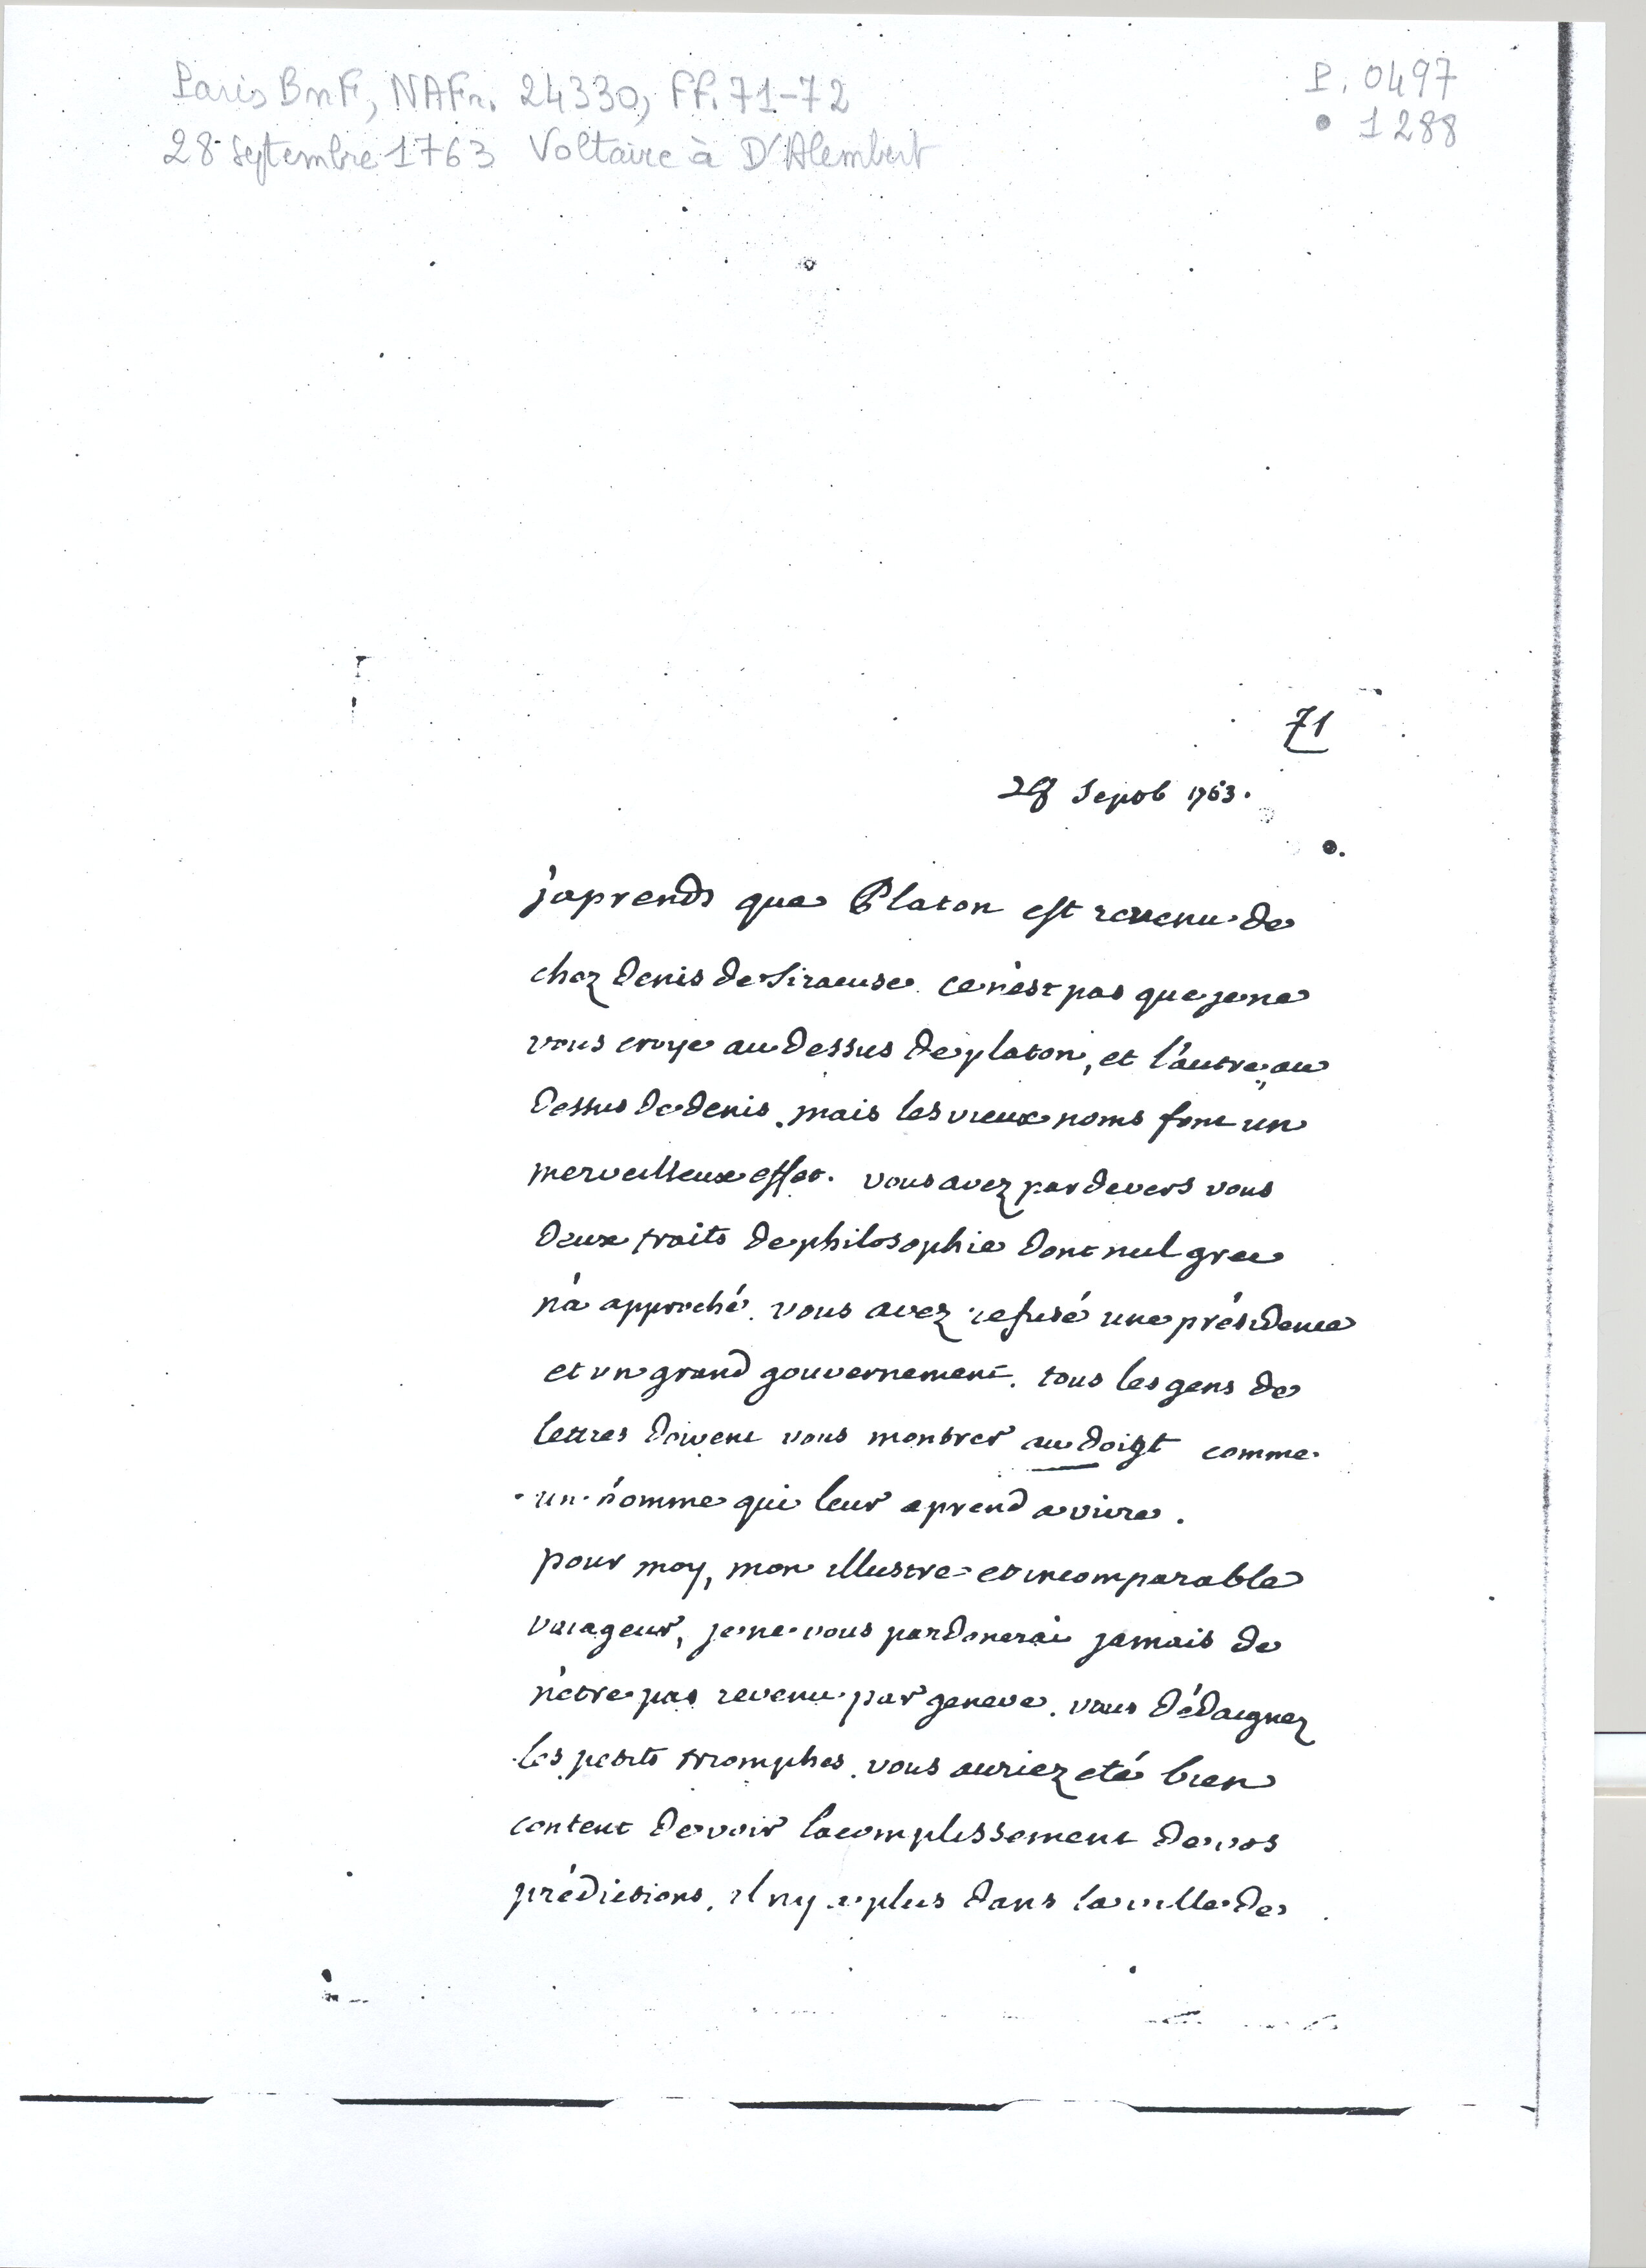 Paris BnF, NAFr. 24330, ff. 71-72
P. 0497
28 Septembre 1763 Voltaire à D'Alembert
1288
71
28 Sepbb 1763.
j'aprends que Platon est revenu de
chez denis de Siracuse. ce n'est pas que je ne
vous croye au dessus de platon, et l'autre au
dessus de denis. mais les vieux noms font un
merveilleux effet. vous avez par devers vous
deux traits de philosophie dont nul grec
n'a approché. vous avez refusé une présidence
et un grand gouvernement. tous les gens de
lettres doivent vous montrer au doigt comme
un homme qui leur aprend a vivre.
pour moy, mon illustre et incomparable
voiageur, je ne vous pardonerai jamais de
n'etre pas revenu par geneve. vous dédaignez
les petits triomphes. vous auriez eté bien
content de voir l'acomplissement de vos
prédictions. il n'y a plus dans la ville de